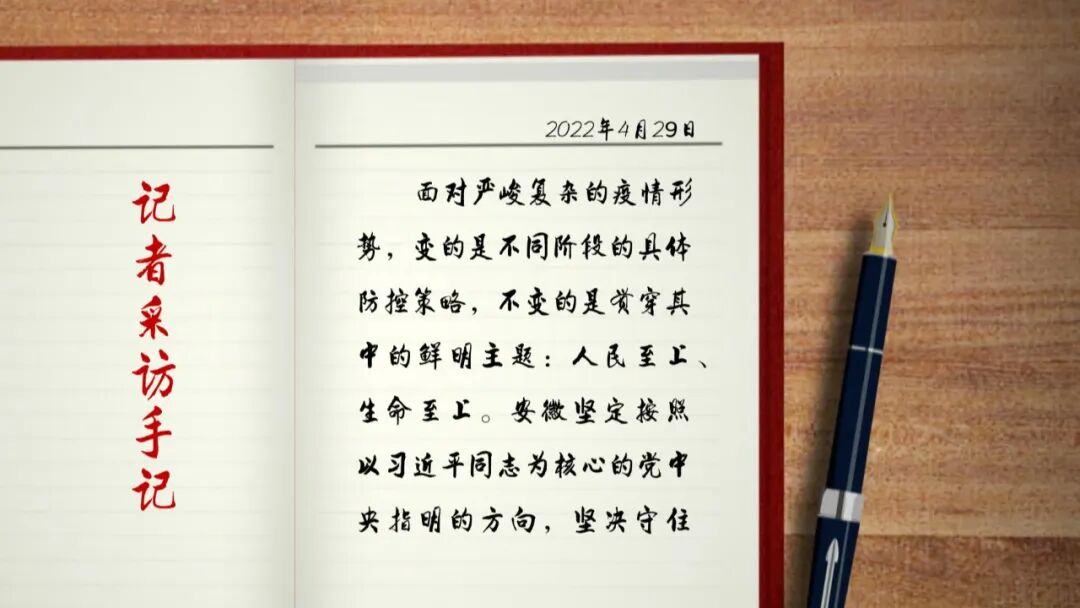 记者采访手记
2022年4月29日
面对严峻复杂的疫情形
势，变的是不同阶段的具体
防控策略，不变的是贯穿其
中的鲜明主题：人民至上、
生命至上。安徽坚定按照
以习近平同志为核心的党中
央指明的方向，坚决守住